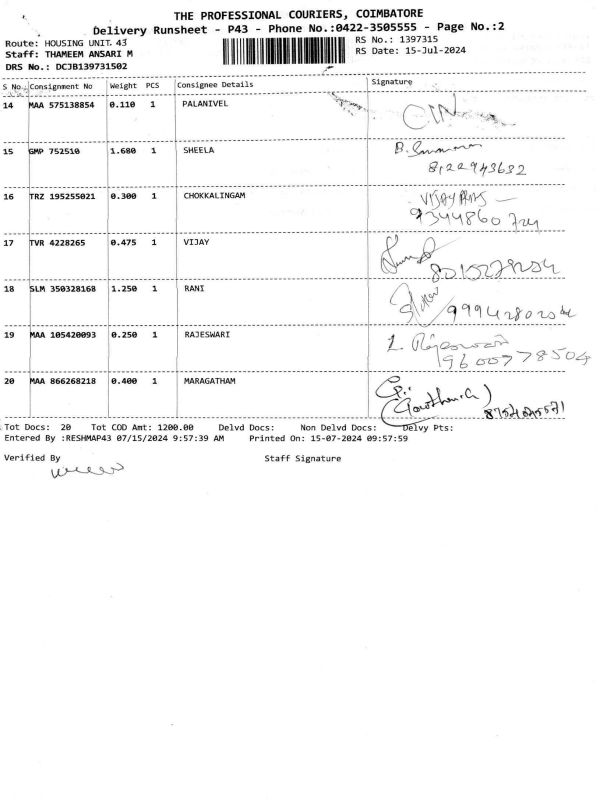 THE PROFESSIONAL COURIERS, COIMBATORE
Delivery Runsheet - P43 - Phone No.:0422-3505555 - Page No.:2
Route: HOUSING UNIT. 43 RS No.: 1397315
Staff: THAMEEM ANSARI M RS Date: 15-Jul-2024
DRS No.: DCJB139731502
S No. Consignment No Weight PCS Consignee Details Signature
14 MAA 575138854 0.110 1 PALANIVEL
15 GMP 752510 1.680 1 SHEELA
8122943632
16 TRZ 195255021 0.300 1 CHOKKALINGAM
17 TVR 4228265 0.475 1 VIJAY
18 SLM 350328168 1.250 1 RANI
19 MAA 105420093 0.250 1 RAJESWARI
9600778504
20 MAA 866268218 0.400 1 MARAGATHAM
Tot Docs: 20 Tot COD Amt: 1200.00 Delvd Docs: Non Delvd Docs: Delvy Pts:
Entered By :RESHMAP43 07/15/2024 9:57:39 AM Printed On: 15-07-2024 09:57:59
Verified By Staff Signature